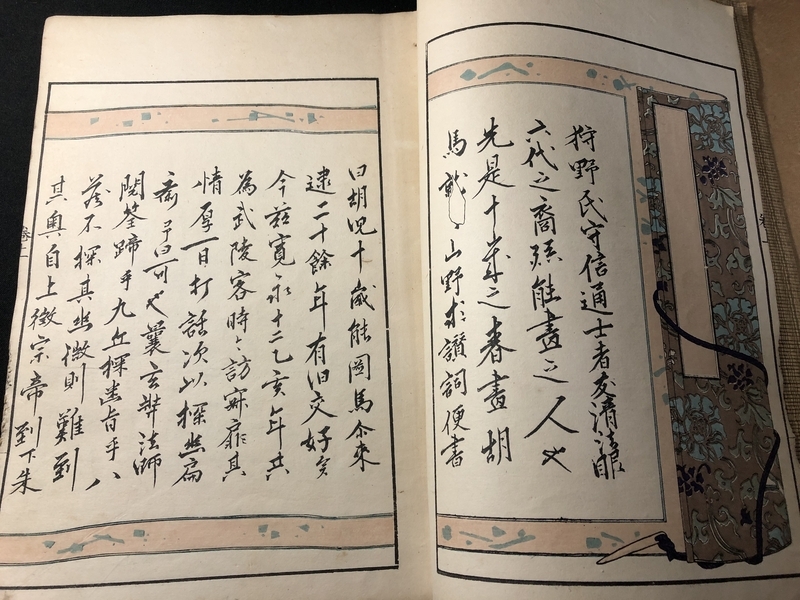 狩野氏守信通士者友清法眼
六代之裔孫能畫之人也
先是十歳之春畫胡
馬 山野求讃詞便書
曰胡児十歳能圖馬尒来
逮二十餘年有旧交好矣
今茲寛永十二乙亥年共
為武陵客時〻訪寂 其
情厚一日打話次以探幽扁
斎予曰可也曩玄奘法師
閲筌蹄乎九丘探 旨乎八
蔵不探其幽微則難到
其奥自上徽宗帝到下朱